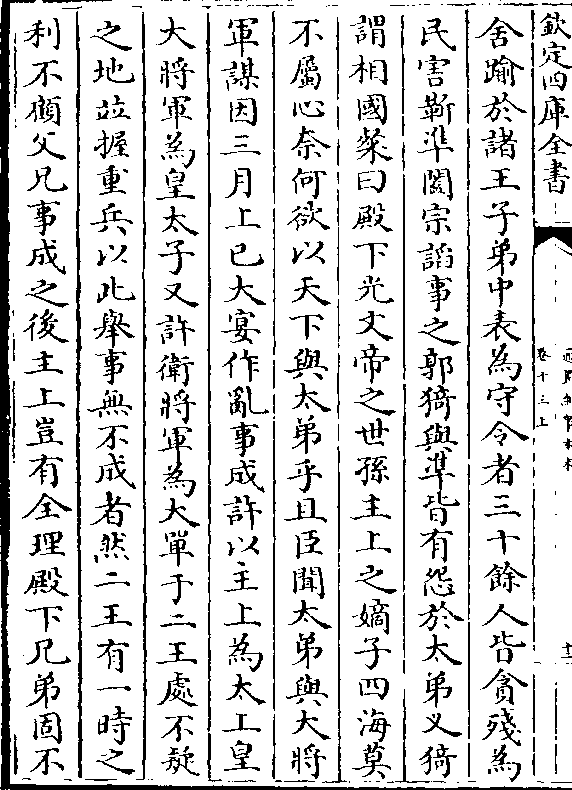 欽定四庫全書
舍踰於諸王子弟中表為守令者三十餘人皆貪殘為
民害靳準闔宗謟事之郭猗與準皆有怨於太弟乂猗
謂相國粲曰殿下光文帝之世孫主上之嫡子四海莫
不屬心奈何欲以天下與太弟乎且臣聞太弟與大將
軍謀因三月上巳大宴作亂事成許以主上為太上皇
大將軍為皇太子又許衛將軍為大單于二王處不疑
之地並握重兵以此舉事無不成者然二王有一時之
利不顧父兄事成之後主上豈有全理殿下兄弟固不
卷十三上